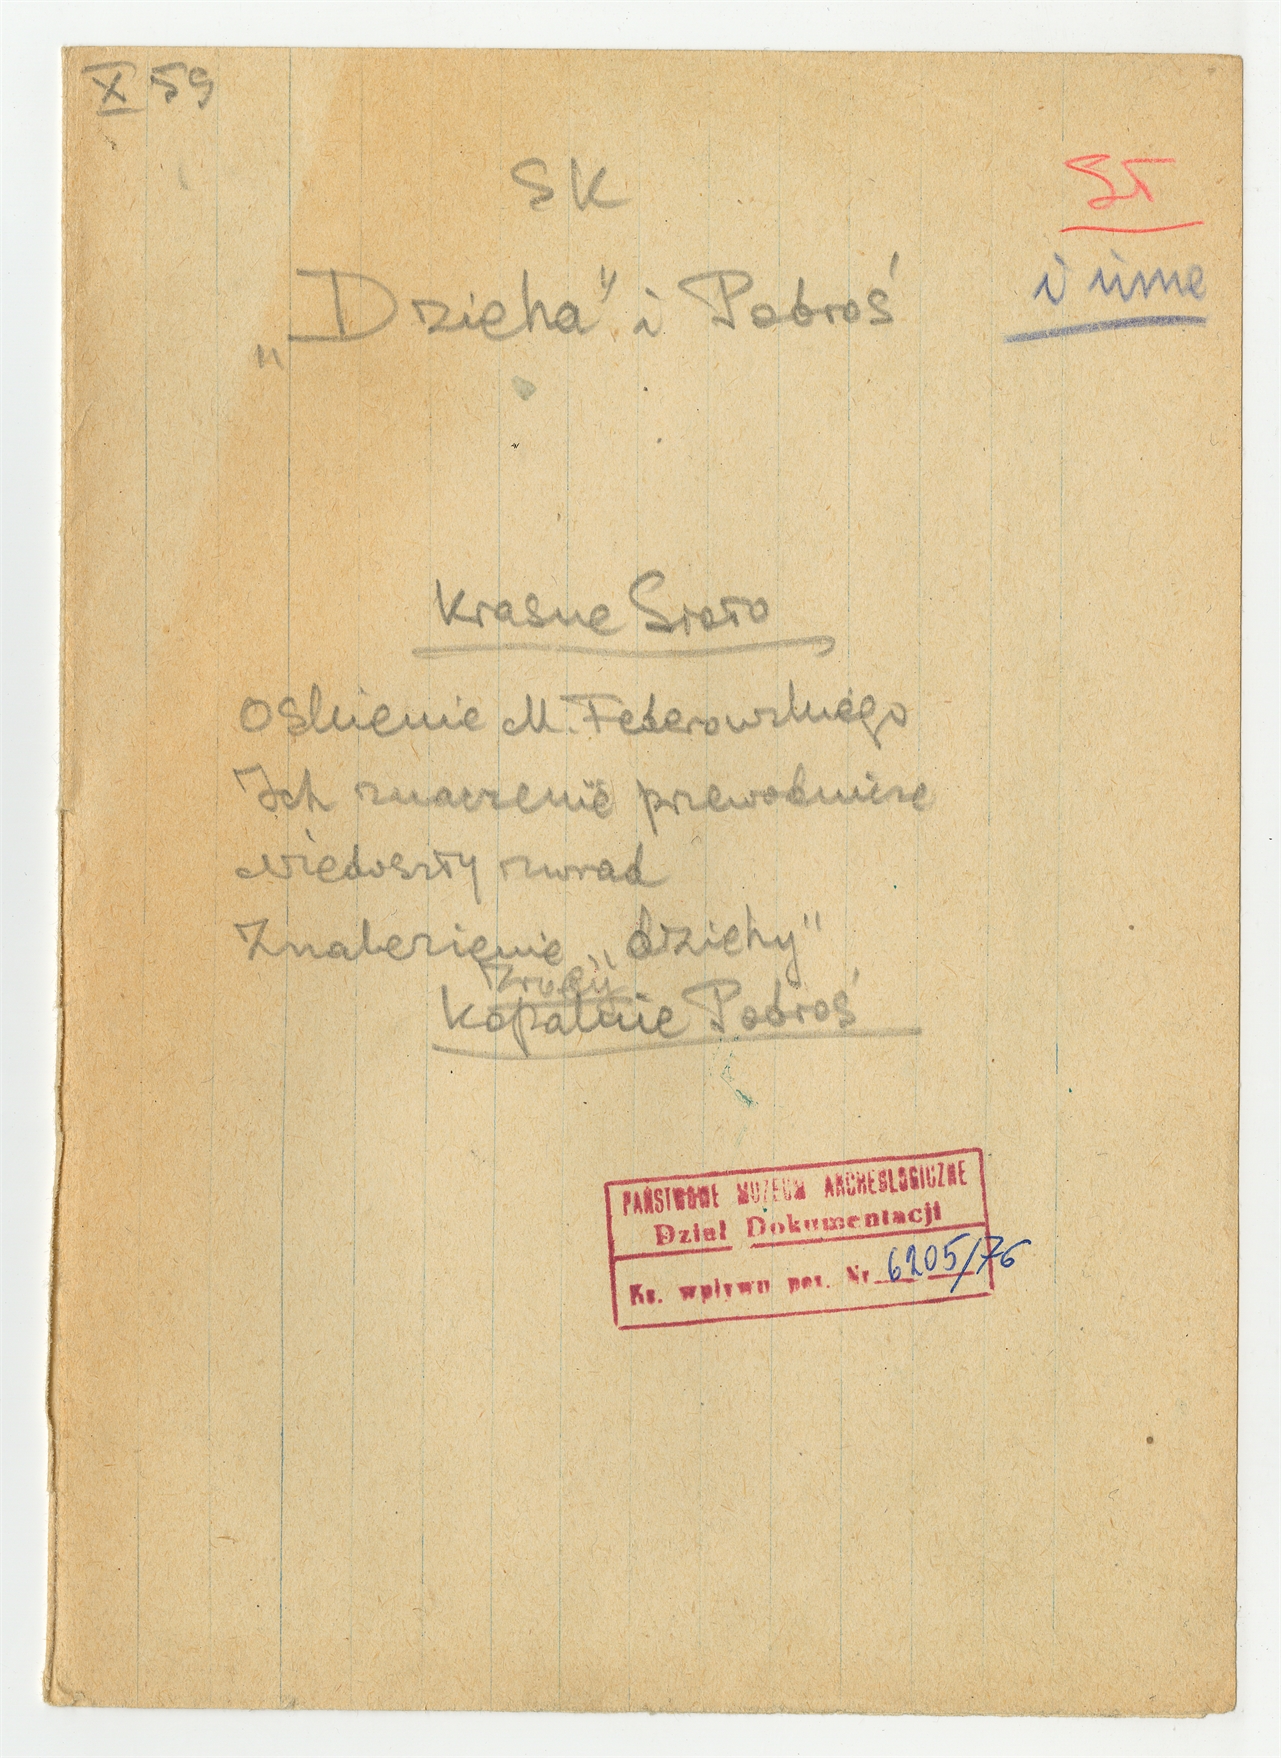 X 59
SK
ST
i inne
„Dzieha" i Podroś
Krasne Sioło
Oslnienie M. Federowskiego
Ich znaczenie przewodnicze
Niedoszły zwrad
Znalezienie „dziehy"
Kopalnie Podroś
PAŃSTWOWE MUZEUM ARCHEOLOGICZNE
Dział Dokumentacji
Ks. wpływu poz. Nr 6205/76